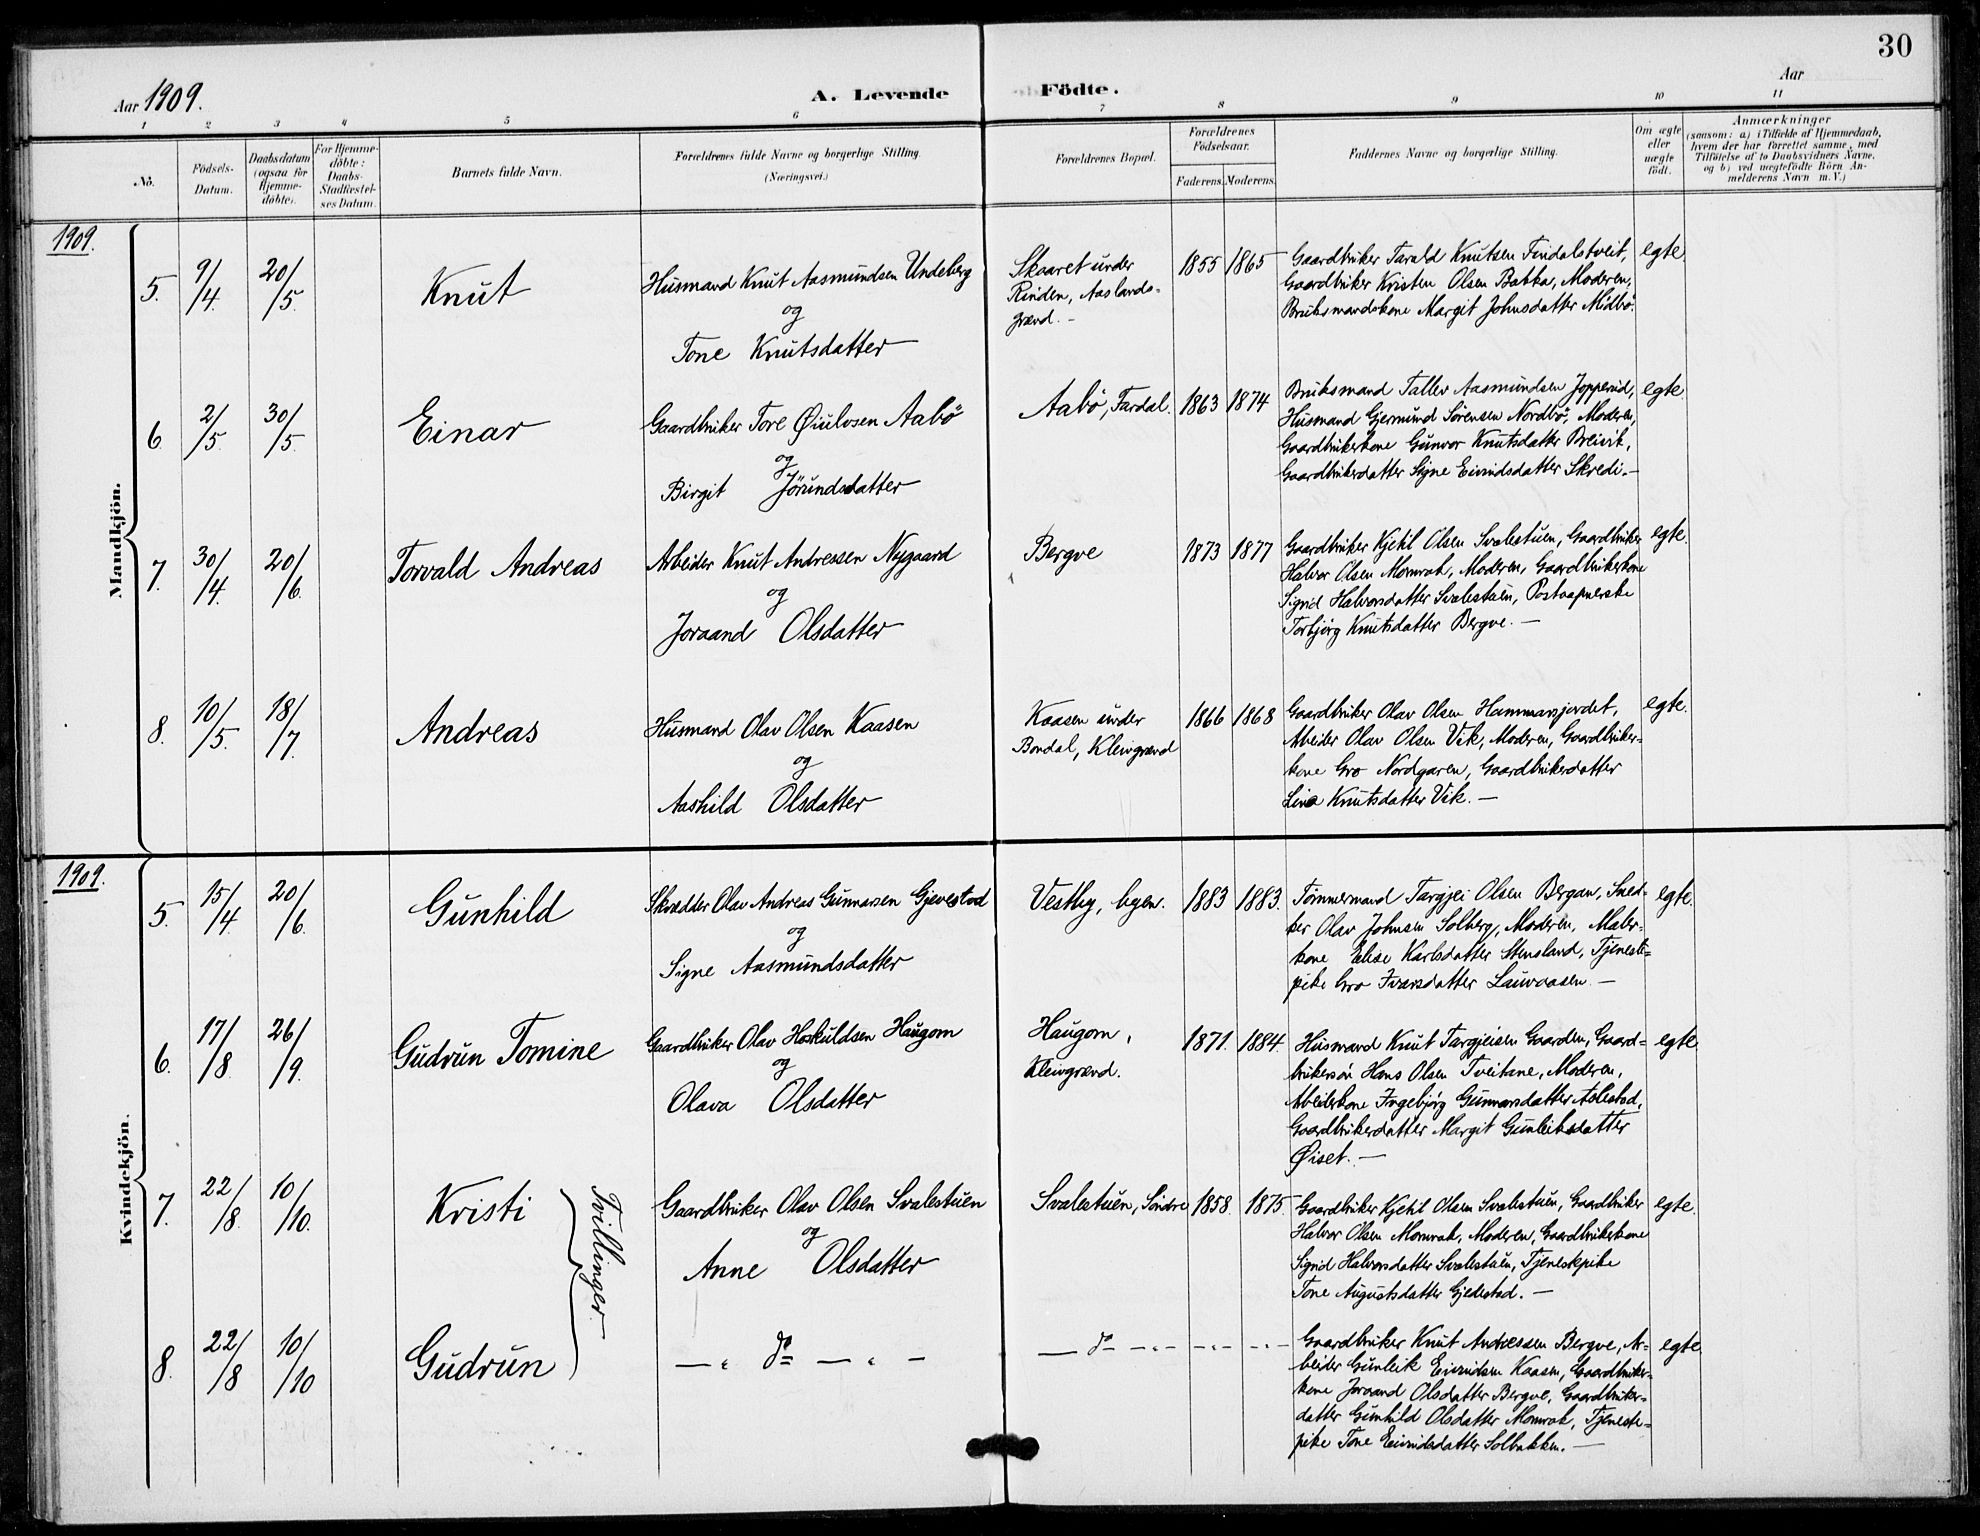 30
Aar 1909.
A. Levende Födte.
Aar
1 2 3 4 5 6 7 8 9 10 11
No.
Födsels-
Datum.
Daabsdatum
(ogsaa for
Hjemme-
døbte).
For Hjemme-
döbte:
Daabs-
Stadfæstel-
ses Datum.
Barnets fulde Navn.
Forældrenes fulde Navne og borgerlige Stilling.
(Næringsvei.)
Forældrenes Bopæl.
Forældrenes
Födselsaar.
Faderens. Moderens.
Faddernes Navne og borgerlige Stilling.
Om ægte
eller
uægte
født.
Anmærkninger
(saasom: a) i Tilfælde af Hjemmedaab,
hvem der har forrettet samme, med
Tilföielse af to Daabsvidners Navne,
og b) ved uægtefödte Börn An-
melderens Navn m. V.)
1909.
Mandkjön.
5. 9/4. 20/5. Knut
Husmand Knut Aasmundsen Undeberg
og
Tone Knutsdatter
Skaaret under
Rinden, Aaslands-
grænd.
1855 1865
Gaardbruker Tarald Knutsen Findalstveit,
Gaardbruker Kristen Olsen Bakka, Moderen,
Bruksmandskone Margit Johnsdatter Midbö.
egte
6. 2/5. 30/5. Einar
Gaardbruker Tore Øiulvsen Aabö
og
Birgit Jörundsdatter
Aabö, Fardal.
1863 1874
Bruksmand Tallev Aasmundsen Jopperud,
Husmand Gjermund Sörensen Nordbö, Moderen,
Gaardbrukerkone Gunvor Knutsdatter Breivik,
Gaardbrukerdatter Signe Eivindsdatter Skredi.
egte
7. 30/4. 20/6. Torvald Andreas
Arbeider Knut Andressen Nygaard
og
Joraand Olsdatter
Bergve
1873 1877
Gaardbruker Kjetil Olsen Svalestuen, Gaardbruker
Halvor Olsen Momrak, Moderen, Gaardbrukerkone
Sigrid Halvorsdatter Svalestuen, Postaapnerske
Torbjörg Knutsdatter Bergve.
egte.
8. 10/5. 18/7. Andreas
Husmand Olav Olsen Kaasen
og
Aashild Olsdatter
Kaasen under
Bondal, Kleivgrænd
1866 1868
Gaardbruker Olav Olsen Hammarsjordet,
Arbeider Olav Olsen Vik, Moderen, Gaardbruker-
kone Gro Nordgaren, Gaardbrukerdatter
Lina Knutsdatter Vik.
egte.
1909.
Kvindekjön.
5. 15/4. 20/6. Gunhild
Skrædder Olav Andreas Gunnarsen Gjevestad
og
Signe Aasmundsdatter
Vestby, byen.
1883 1883.
Tömmermand Targjei Olsen Bergan, Sned-
ker Olav Johnsen Solberg, Moderen, Maler-
kone Elise Karlsdatter Stensland, Tjeneste-
pike Gro Ivarsdatter Lauvaasen.
egte.
6. 17/8. 26/9. Gudrun Tomine
Gaardbruker Olav Hoskuldsen Haugom
og
Olava Olsdatter
Haugom,
Kleivgrænd.
1871. 1884.
Husmand Knut Targjeisen Gaarden, Gaard-
brukersön Hans Olsen Tveitane, Moderen,
Arbeiderkone Ingebjörg Gunnarsdatter Aslestad,
Gaardbrukerdatter Margit Gunleiksdatter
Øiset.
egte
7. 22/8. 10/10. Kristi
Tvillinger.
Gaardbruker Olav Olsen Svalestuen
og
Anne Olsdatter
Svalestuen, Söndre
1858. 1875.
Gaardbruker Kjetil Olsen Svalestuen, Gaardbruker
Halvor Olsen Momrak, Moderen, Gaardbrukerkone
Sigrid Halvorsdatter Svalestuen, Tjenestpike
Tone Augustsdatter Gjelestad.
egte.
8. 22/8 10/10 Gudrun
— " do — " —
— do — " — " — " —
Gaardbruker Knut Andressen Bergve, Ar-
beider Gunleik Eivindsen Kaasen, Gaardbruker-
kone Joraand Olsdatter Bergve, Gaardbruker-
datter Gunhild Olsdatter Momrak, Tjeneste-
pike Tone Eivindsdatter Solbakken.
egte.